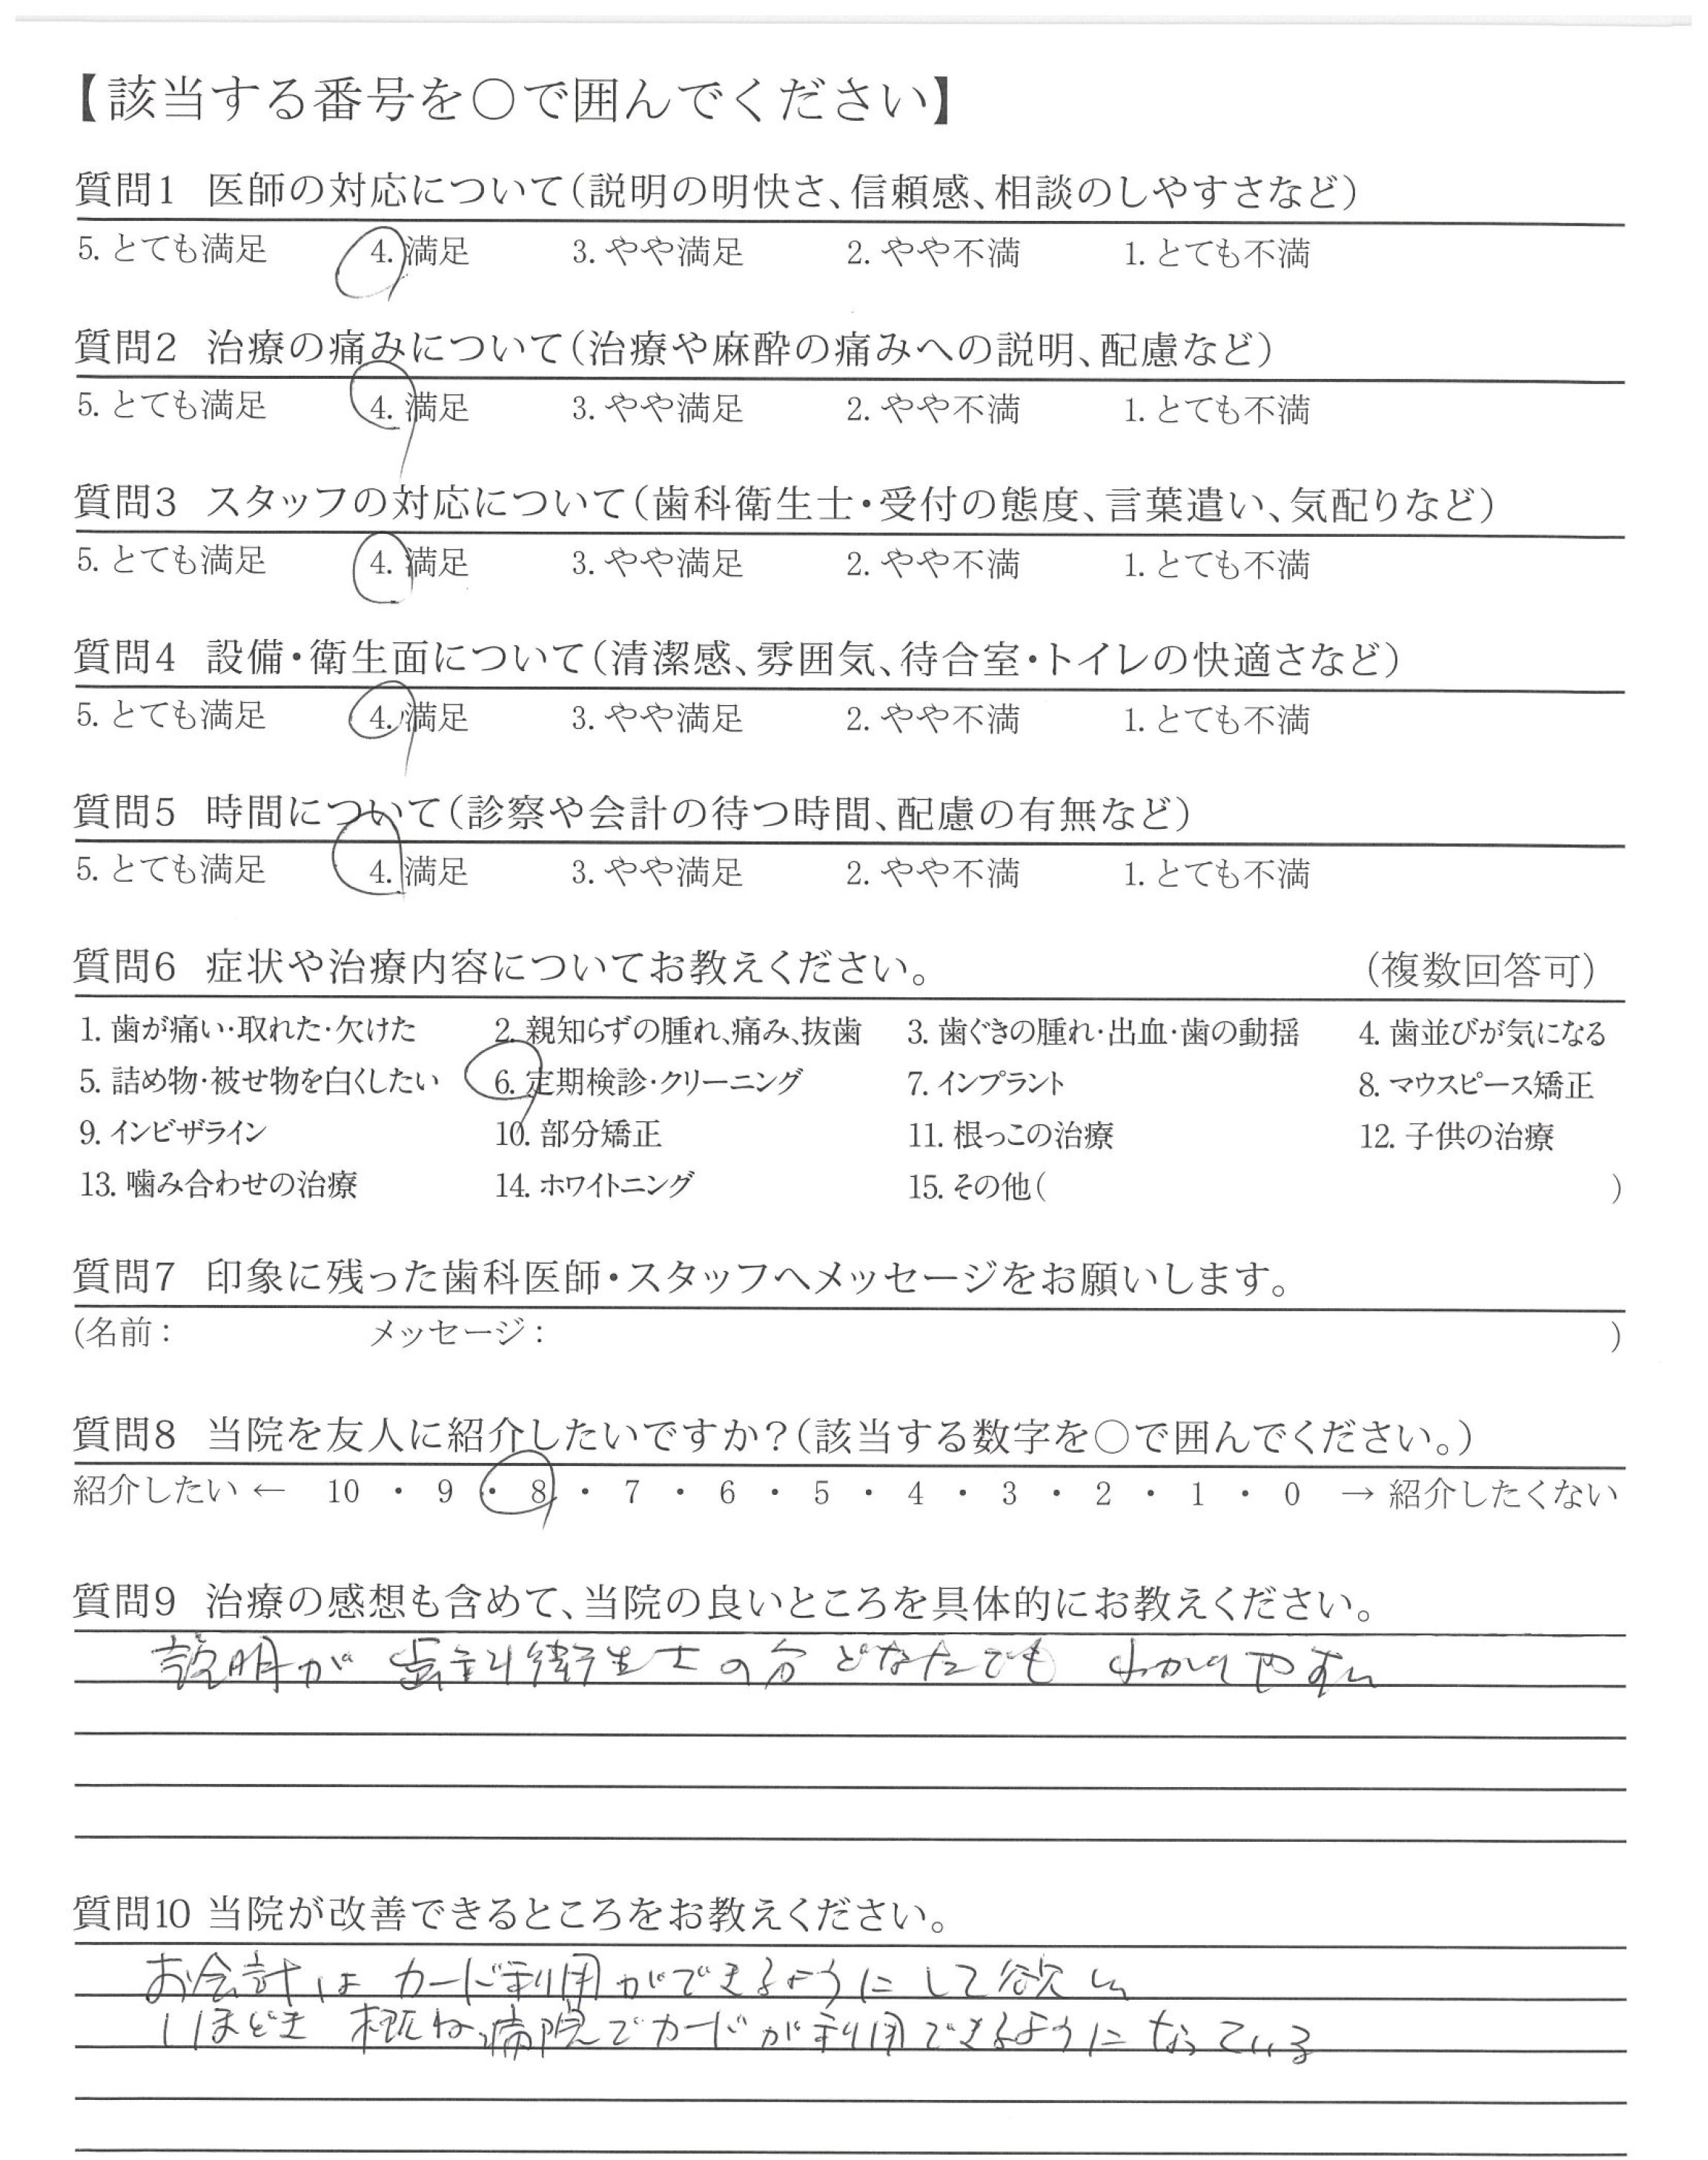 【該当する番号を〇で囲んでください】
質問1 医師の対応について(説明の明快さ、信頼感、相談のしやすさなど)
5. とても満足 4. 満足 3. やや満足 2. やや不満 1. とても不満
質問2 治療の痛みについて(治療や麻酔の痛みへの説明、配慮など)
5. とても満足 4. 満足 3. やや満足 2. やや不満 1. とても不満
質問3 スタッフの対応について(歯科衛生士・受付の態度、言葉遣い、気配りなど)
5. とても満足 4. 満足 3. やや満足 2. やや不満 1. とても不満
質問4 設備・衛生面について(清潔感、雰囲気、待合室・トイレの快適さなど)
5. とても満足 4. 満足 3. やや満足 2. やや不満 1. とても不満
質問5 時間について(診察や会計の待つ時間、配慮の有無など)
5. とても満足 4. 満足 3. やや満足 2. やや不満 1. とても不満
質問6 症状や治療内容についてお教えください。 (複数回答可)
1. 歯が痛い・取れた・欠けた 2. 親知らずの腫れ、痛み、抜歯 3. 歯ぐきの腫れ・出血・歯の動揺 4. 歯並びが気になる
5. 詰め物・被せ物を白くしたい 6. 定期検診・クリーニング 7. インプラント 8. マウスピース矯正
9. インビザライン 10. 部分矯正 11. 根っこの治療 12. 子供の治療
13. 噛み合わせの治療 14. ホワイトニング 15. その他( )
質問7 印象に残った歯科医師・スタッフへメッセージをお願いします。
(名前: メッセージ: )
質問8 当院を友人に紹介したいですか?(該当する数字を〇で囲んでください。)
紹介したい ← 10 ・ 9 ・ 8 ・ 7 ・ 6 ・ 5 ・ 4 ・ 3 ・ 2 ・ 1 ・ 0 → 紹介したくない
質問9 治療の感想も含めて、当院の良いところを具体的にお教えください。
説明が 歯科衛生士の方 どなたでも わかりやすい
質問10 当院が改善できるところをお教えください。
お会計は カード利用ができるようにして欲しい
いまどき 概ね病院でカードが利用できるようになっている